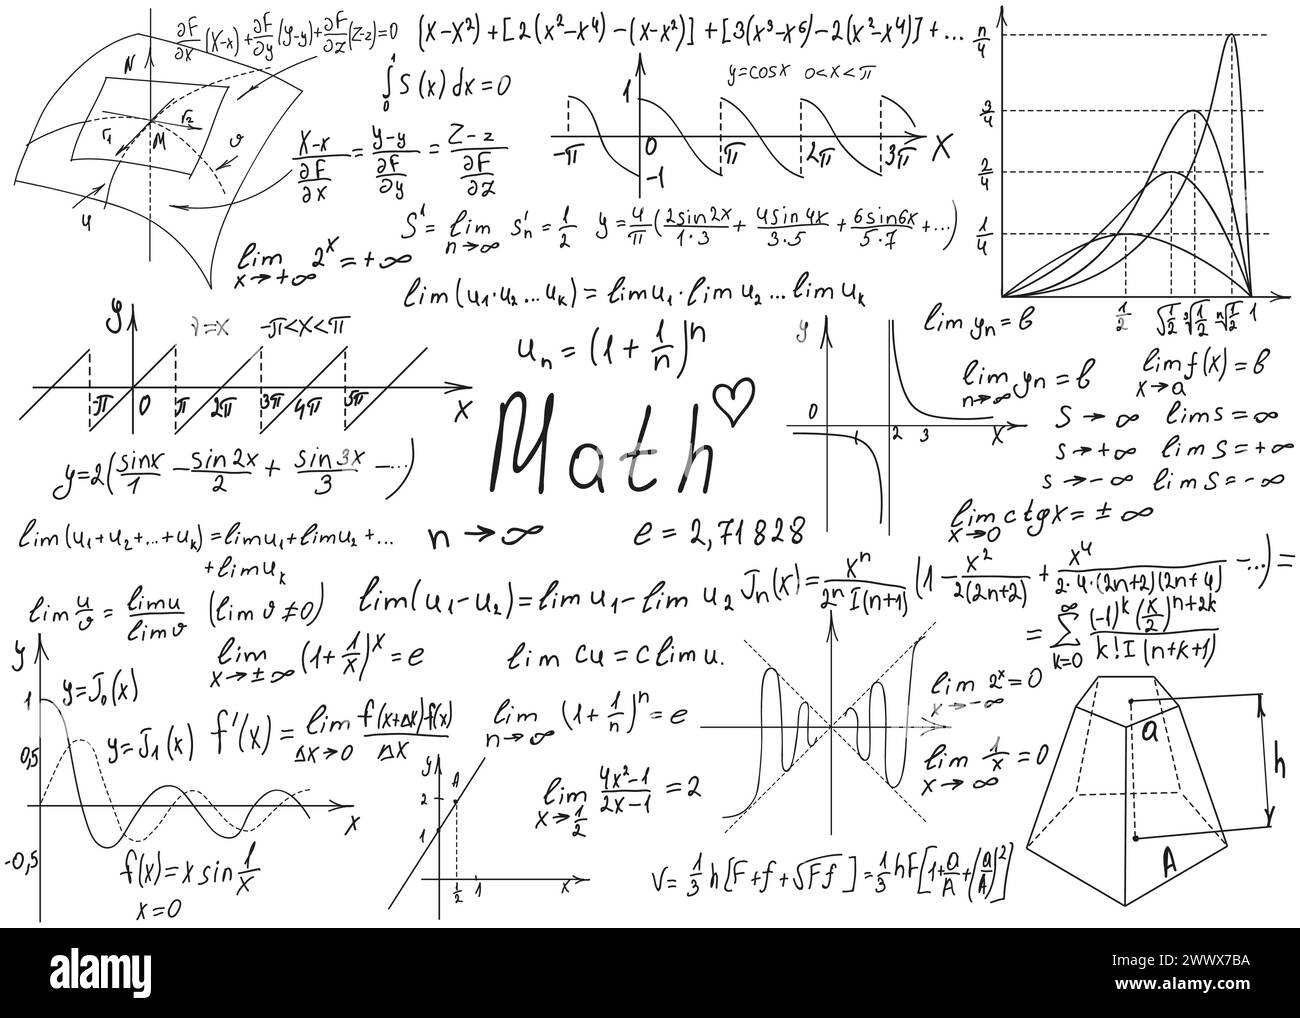 ∂F/∂x (X-x) + ∂F/∂y (Y-y) + ∂F/∂z (Z-z) = 0
(x-x²)+[2(x²-x⁴)-(x-x²)]+[3(x³-x⁶)-2(x²-x⁴)]+...
N
r₁ r₂
M
υ
u
∫₀¹ S(x) dx = 0
(X-x)/(∂F/∂x) = (y-y)/(∂F/∂y) = (Z-z)/(∂F/∂z)
y=cosx 0<x<π
1
-π 0 π 2π 3π X
-1
n/4
3/4
2/4
1/4
1/2 √1/2 ³√1/2 ⁿ√1/2 1
S¹ = lim n→∞ S'n = 1/2
y = 4/π (2sin2x/1·3 + 4sin4x/3·5 + 6sin6x/5·7 + ...)
lim x→+∞ 2ˣ = +∞
lim(u₁·u₂...uₖ) = limu₁·limu₂...lim uₖ
y =x -π<x<π
-π 0 π 2π 3π 4π 5π x
uₙ = (1+1/n)ⁿ
Math♡
y
0 1 2 3 x
lim yₙ = b
lim n→∞ yₙ = b
lim x→a f(x) = b
S→∞ lim S = ∞
S→+∞ lim S = +∞
S→-∞ lim S = -∞
y=2(sinx/1 - sin2x/2 + sin3x/3 - ...)
lim x→0 ctgx = ±∞
lim(u₁+u₂+...+uₖ) = limu₁+limu₂+...
+limuₖ
n→∞
e = 2,71828
lim u/υ = limu/limυ (lim υ≠0)
lim(u₁-u₂) = lim u₁ - lim u₂
Jₙ(x) = xⁿ/2ⁿ I(n+1) (1 - x²/2(2n+2) + x⁴/2·4·(2n+2)(2n+4) - ...) =
= ∑ₖ₌₀^∞ (-1)ᵏ (x/2)ⁿ⁺²ᵏ / k! I (n+k+1)
lim x→±∞ (1+1/x)ˣ = e
lim cu = c lim u.
y
1
0,5
-0,5
x
y=J₀(x)
y=J₁(x)
f'(x) = lim Δx→0 f(x+Δx)-f(x)/Δx
lim n→∞ (1+1/n)ⁿ = e
lim x→-∞ 2ˣ = 0
lim x→∞ 1/x = 0
y
A
2
1
1/2 1 x
lim x→1/2 4x²-1/2x-1 = 2
f(x) = x sin 1/x
x=0
V = 1/3 h [F+f+√Ff] = 1/3 hF [1+a/A+(a/A)²]
a
h
A
alamy
Image ID: 2WWX7BA
www.alamy.com